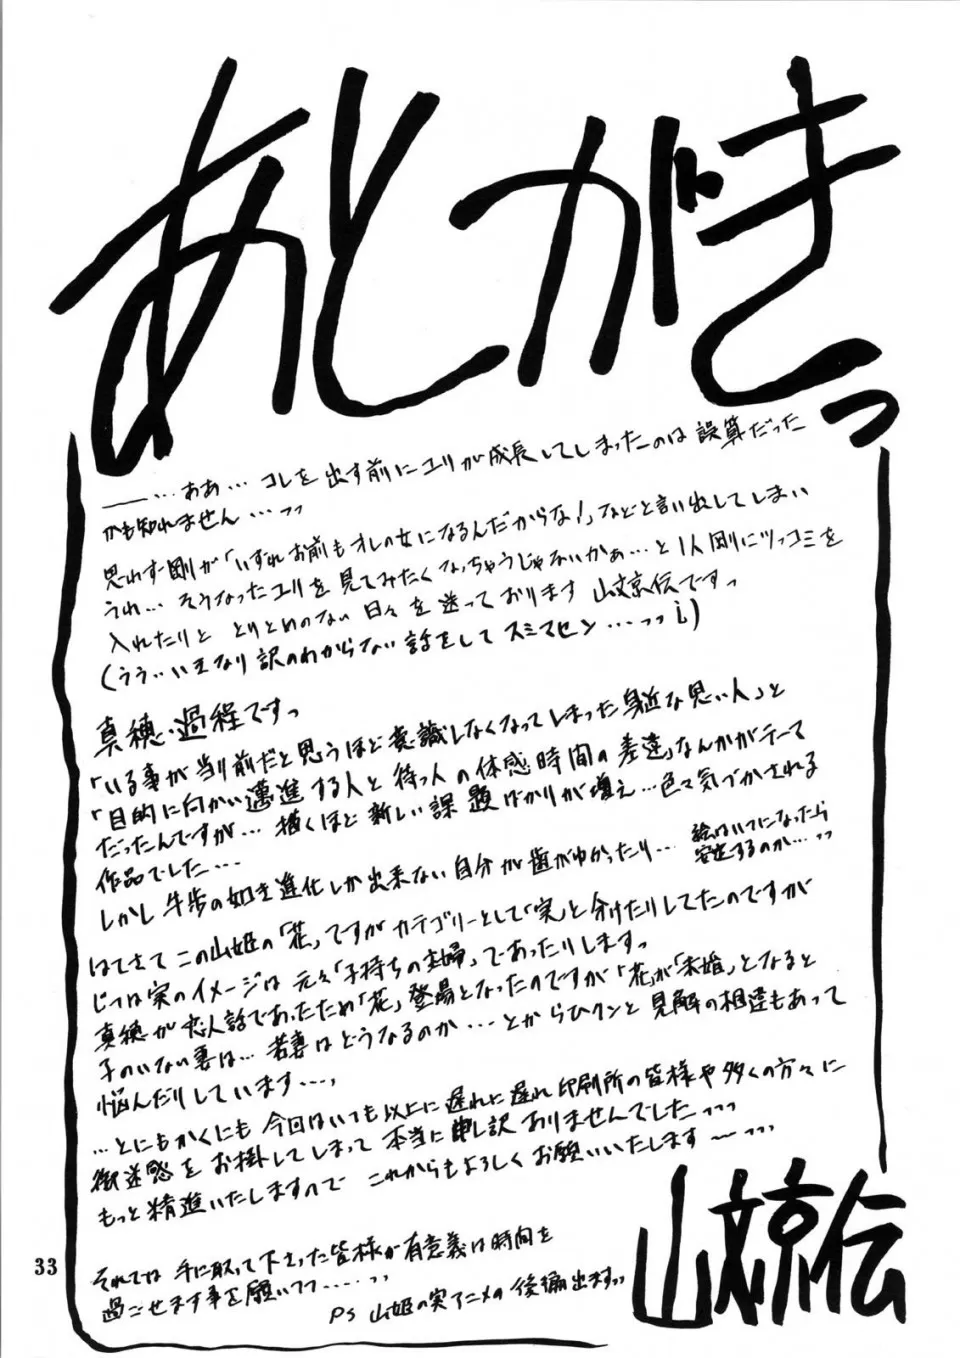 あとがきっ
――…ああ…コレを出す前にユリが成長してしまったのは誤算だった
かも知れません…っっ
思わず剛が「いずれお前もオレの女になるんだからな!」などと言い出してしまい
うれ…そうなったユリを見てみたくなっちゃうじゃないかぁ…と1人剛にツッコミを
入れたりと とりとめのない日々を送っております 山文京伝ですっ
(うぅ…いきなり訳のわからない話をしてスミマセン…っっ i)
真穂・過程ですっ
「いる事が当り前だと思うほど意識しなくなってしまった身近な思い人」と
「目的に向かい邁進する人と待つ人の体感時間の差違」なんかがテーマ
だったんですが…描くほど新しい課題ばかりが増え…色々気づかされる
作品でした…
しかし牛歩の如き進化しか出来ない自分が歯がゆかったり…
絵はいつになったら
安定するのか…っっ
はてさてこの山姫の「花」ですがカテゴリーとして「実」と分けたりしてたのですが
じつは実のイメージは元々「子持ちの主婦」であったりしますっ
真穂が恋人話であったため「花」登場となったのですが「花」が「未婚」となると
子のいない妻は…若妻はどうなるのか…とからひクンと見解の相違もあって
悩んだりしています…、
…とにもかくにも今回はいつも以上に遅れに遅れ印刷所の皆様や多くの方々に
御迷惑をお掛してしまって本当に申し訳ありませんでした…っっ
もっと精進いたしますので これからもよろしくお願いいたします〜っっ
それでは 手に取って下さった皆様が有意義な時間を
過ごせます事を願いつつ……っっ
PS 山姫の実アニメの後編出ますっっ
山文京伝
33